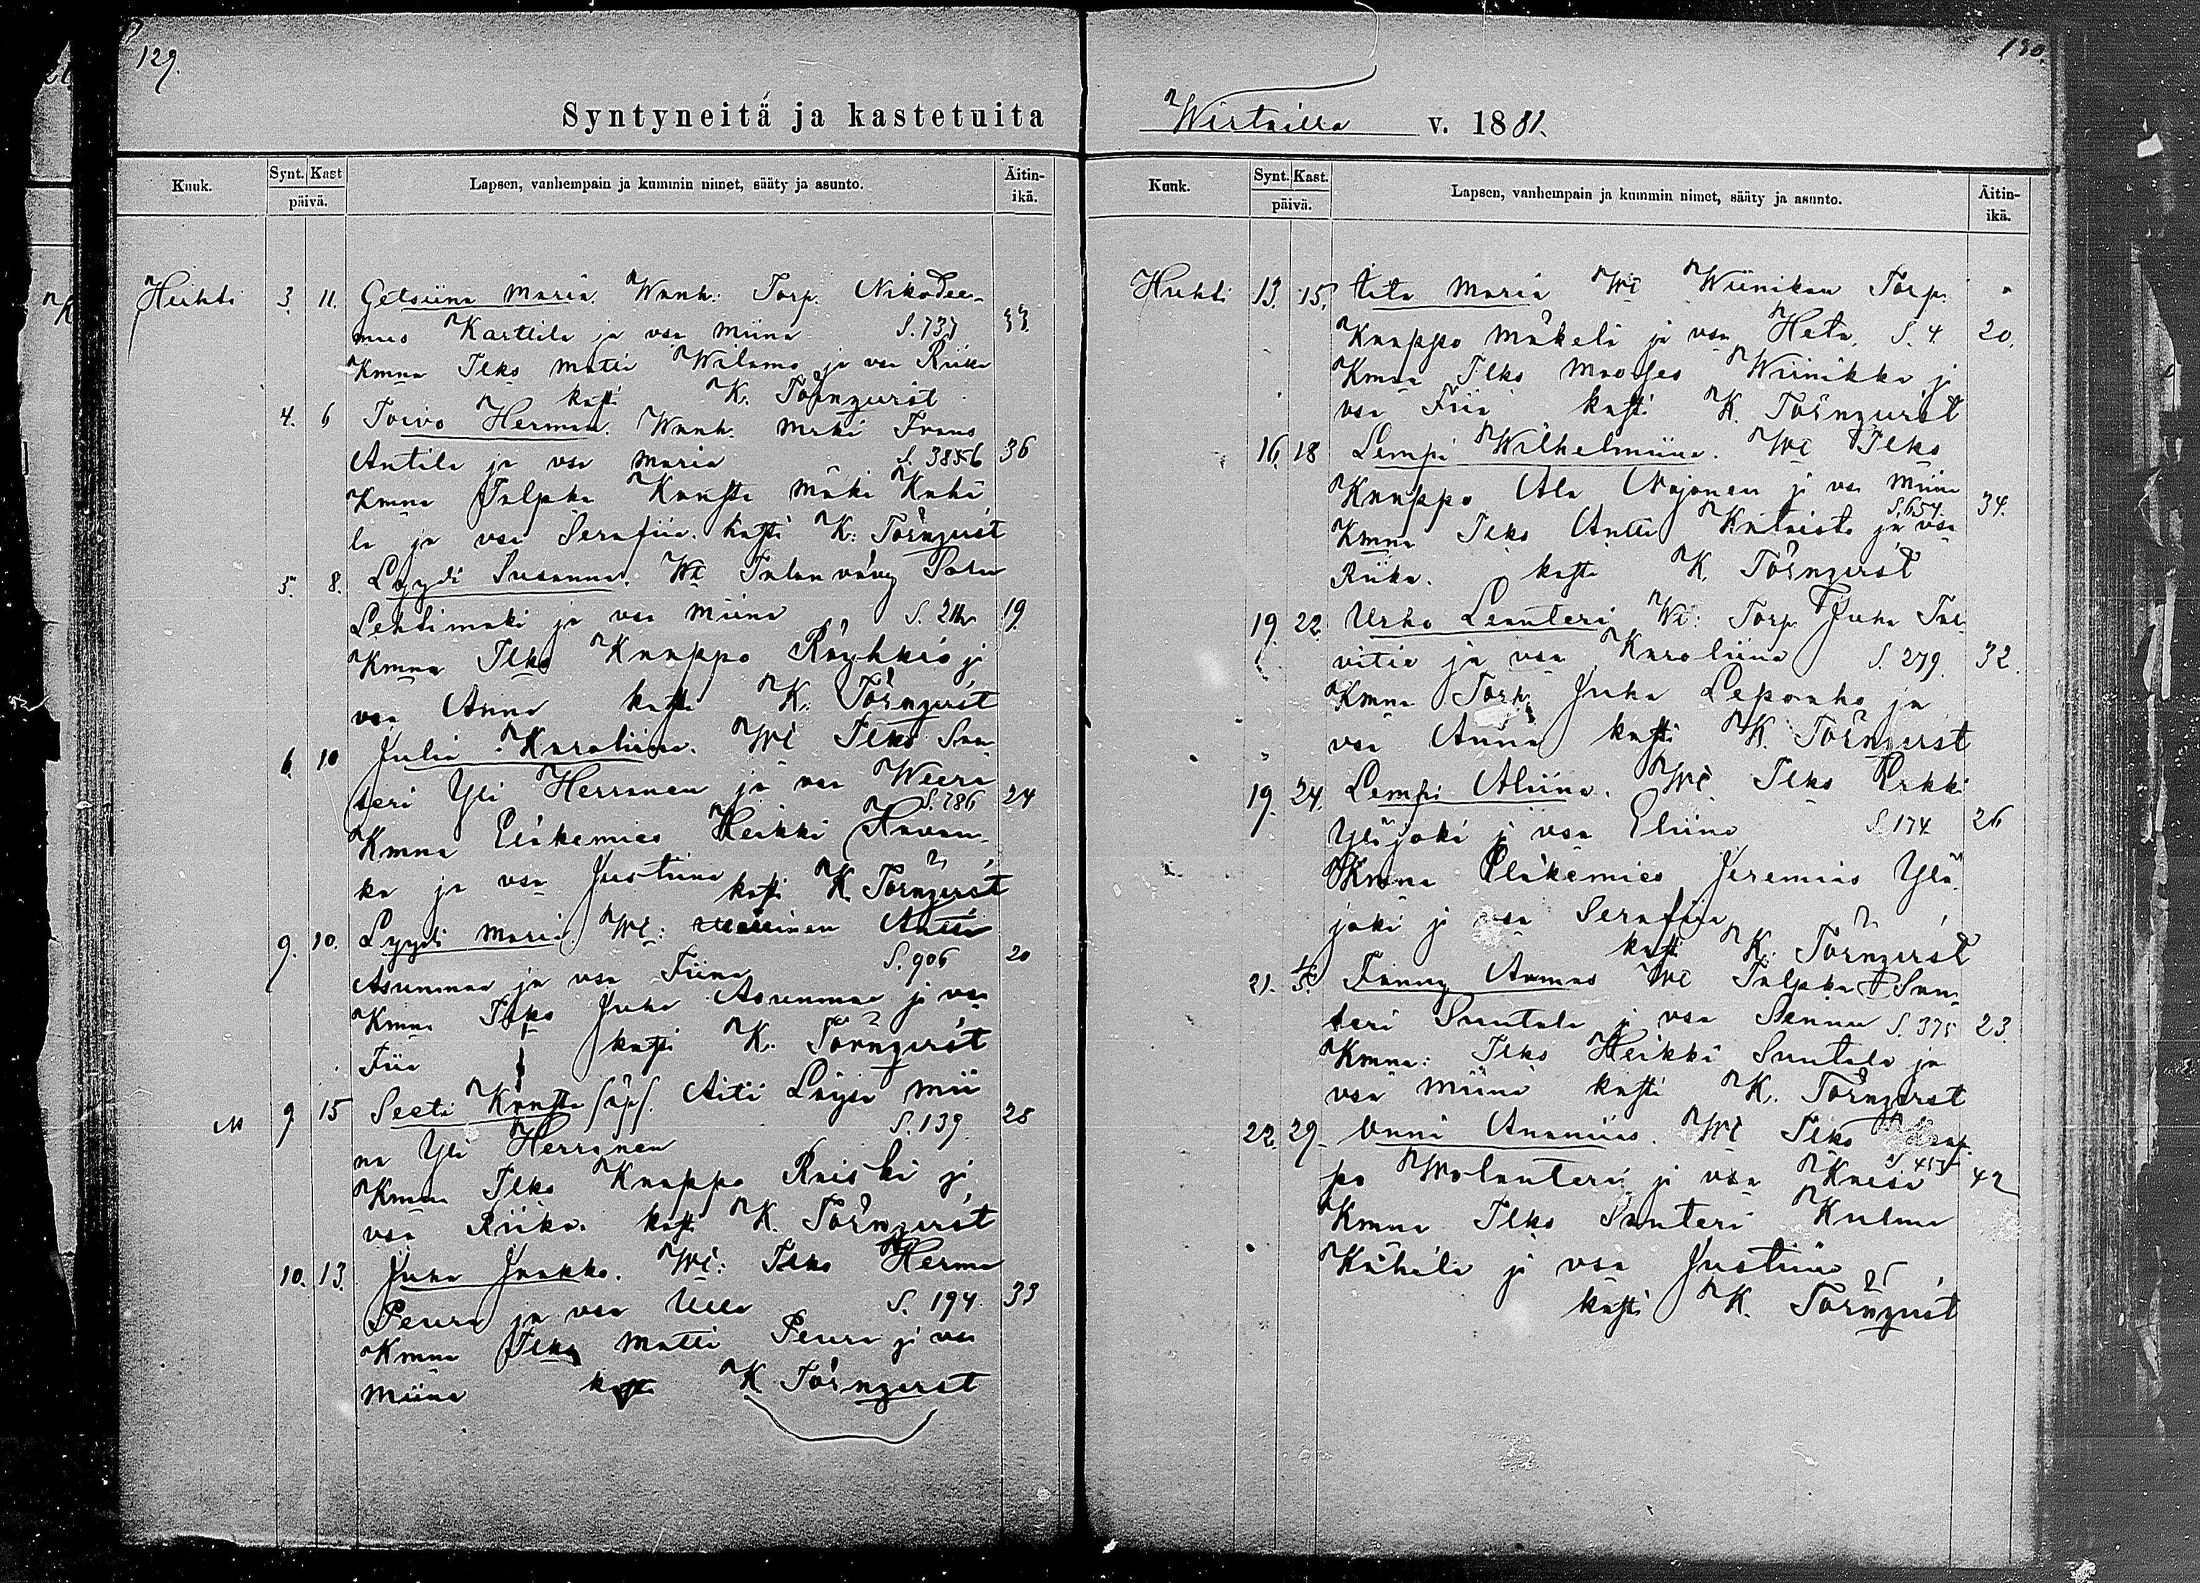 129.
Syntyneitä ja kastetuita
Kuuk. Synt. Kast päivä. Lapsen, vanhempain ja kummin nimet, sääty ja asunto. Äitin-ikä.
Huhti 3. 11. Getsiina Maria. Wanh: Torp. Nikodee-
mus Karttila ja vsa Miina S. 737 33.
Kmna Ilks Matti Wilamo ja vsa Riika
kasti K. Törnqvist
4. 6 Toivo Herman. Wanh. Mäki Frans
Antila ja vsa Maria S. 3856 36
Kmna Talpka Kausti Mäki Kahi
la ja vsa Serafiia. kasti K. Törnqvist
5. 8. Lyydi Susanna. Wt Talon vävy
Lehtimäki ja vsa Miina 19.
Kmna Ilks Kaappo Räyhkiö ja
vsa Anna kasti K. Törnqvist
6. 10 Julia Karoliina. Wt Ilks San-
teri Yli Herranen ja vsa Weera
S. 786 24
Kmna Eläkemies Heikki Havan-
ka ja vsa Justiina kasti K. Törnqvist
9. 10. Lyydi Maria. Wt: Antti
Asunmaa ja vsa Fiina S. 906 20
Kmna Ilks Juha Asunmaa ja vsa
Fiia kasti K. Törnqvist
M 9 15 Seeti Kausti äps. Äiti Löysä Mii
na Yli Herranen S. 139. 28
Kmna Ilks Kaappo Raiski ja
vsa Riika. kasti K. Törnqvist
10. 13. Juha Jaakko. Wt: Ilks Herma
Peura ja vsa Ulla S. 194. 33
Kmna Ilks Matti Peura ja vsa
Miina kasti K Törnqvist
130.
Wirtailla v. 1881.
Kuuk. Synt. Kast. päivä. Lapsen, vanhempain ja kummin nimet, sääty ja asunto. Äitin-ikä.
Huhti 13. 15. Iita Maria Wt Wiinikan Torp.
Kaappo Mäkeli ja vsa Heta. S. 4 20.
Kmna Ilks Mooses Wiinikka ja
vsa Fiia kasti K. Törnqvist
16. 18 Lempi Wilhelmiina. Wt Ilks
Kaappo Ala Ojonen ja vsa Miina
S. 654. 34.
Kmna Ilks Antti Kataisto ja vsa
Riika. kasti K. Törnqvist
19. 22. Urho Leanteri Wt: Torp Juha Tal-
vitie ja vsa Karoliina S. 279. 32.
Kmna Torp. Juha Leponho ja
vsa Anna kasti K. Törnqvist
19. 24. Lempi Aliina. Wt Ilks Erkki
Yläjoki ja vsa Eliina S. 174 26
Kmna Eläkemies Jeremias Ylä-
joki ja vsa Serafiia
kasti K. Törnqvist
21. Fanny Armas Wt Talpka San-
teri Suutala ja vsa Senna S. 375 23.
Kmna: Ilks Heikki Suutala ja
vsa Miina kasti K. Törnqvist
22. 29. Onni Ananias. Wt Ilks Kaap-
po Wolanteri ja vsa Kaesa 42
Kmna Ilks Santeri Kulma
Kähälä ja vsa Justiina
kasti K. Törnqvist